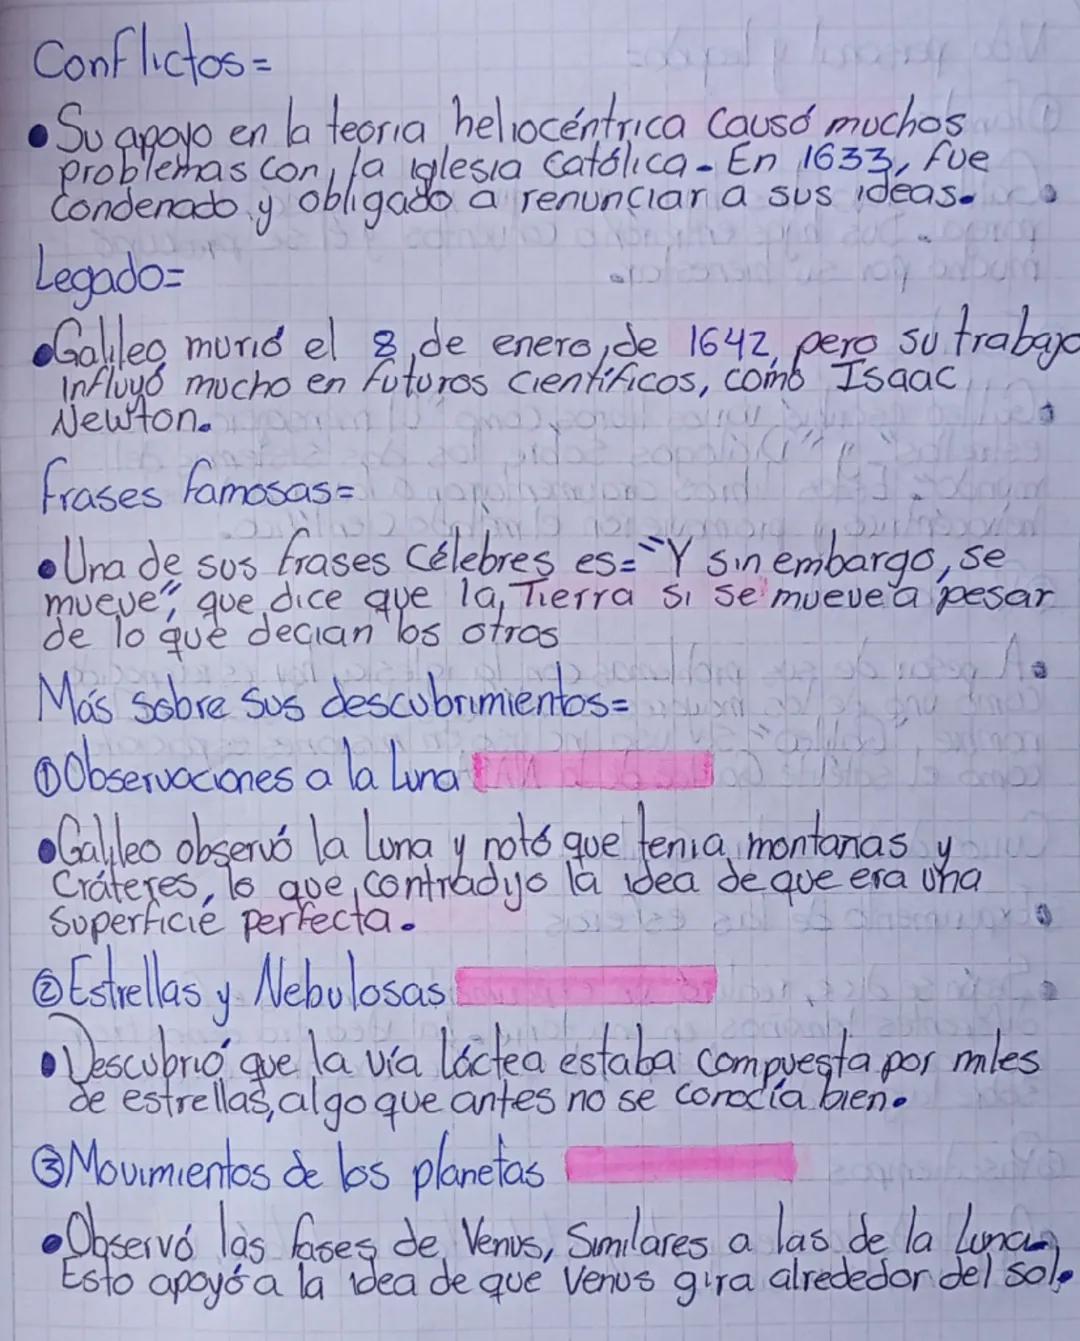 Conflictos=
• Su apoyo en la teoria heliocéntrica causó muchos
problemas con la iglesia católica. En 1633, fue
condenado y obligado a renunciar a sus ideas.
Legado=
• Galileo murió el 8 de enero de 1642, pero su trabajo
influyó mucho en futuros científicos, como Isaac
Newton.
frases famosas=
• Una de sus frases célebres es= "Y sin embargo, se
mueve", que dice que la Tierra si se mueve a pesar
de lo que decian los otros
Más sobre sus descubrimientos=
① Observaciones a la luna
• Galileo observó la luna y notó que tenia montañas y
cráteres, lo que contradijo la idea de que era una
superficie perfecta.
② Estrellas y Nebulosas
• Descubrió que la vía láctea estaba compuesta por miles
de estrellas, algo que antes no se conocía bien.
③ Movimientos de los planetas
• Observó las fases de Venus, Similares a las de la luna,
Esto apoyó a la idea de que Venus gira alrededor del sol.